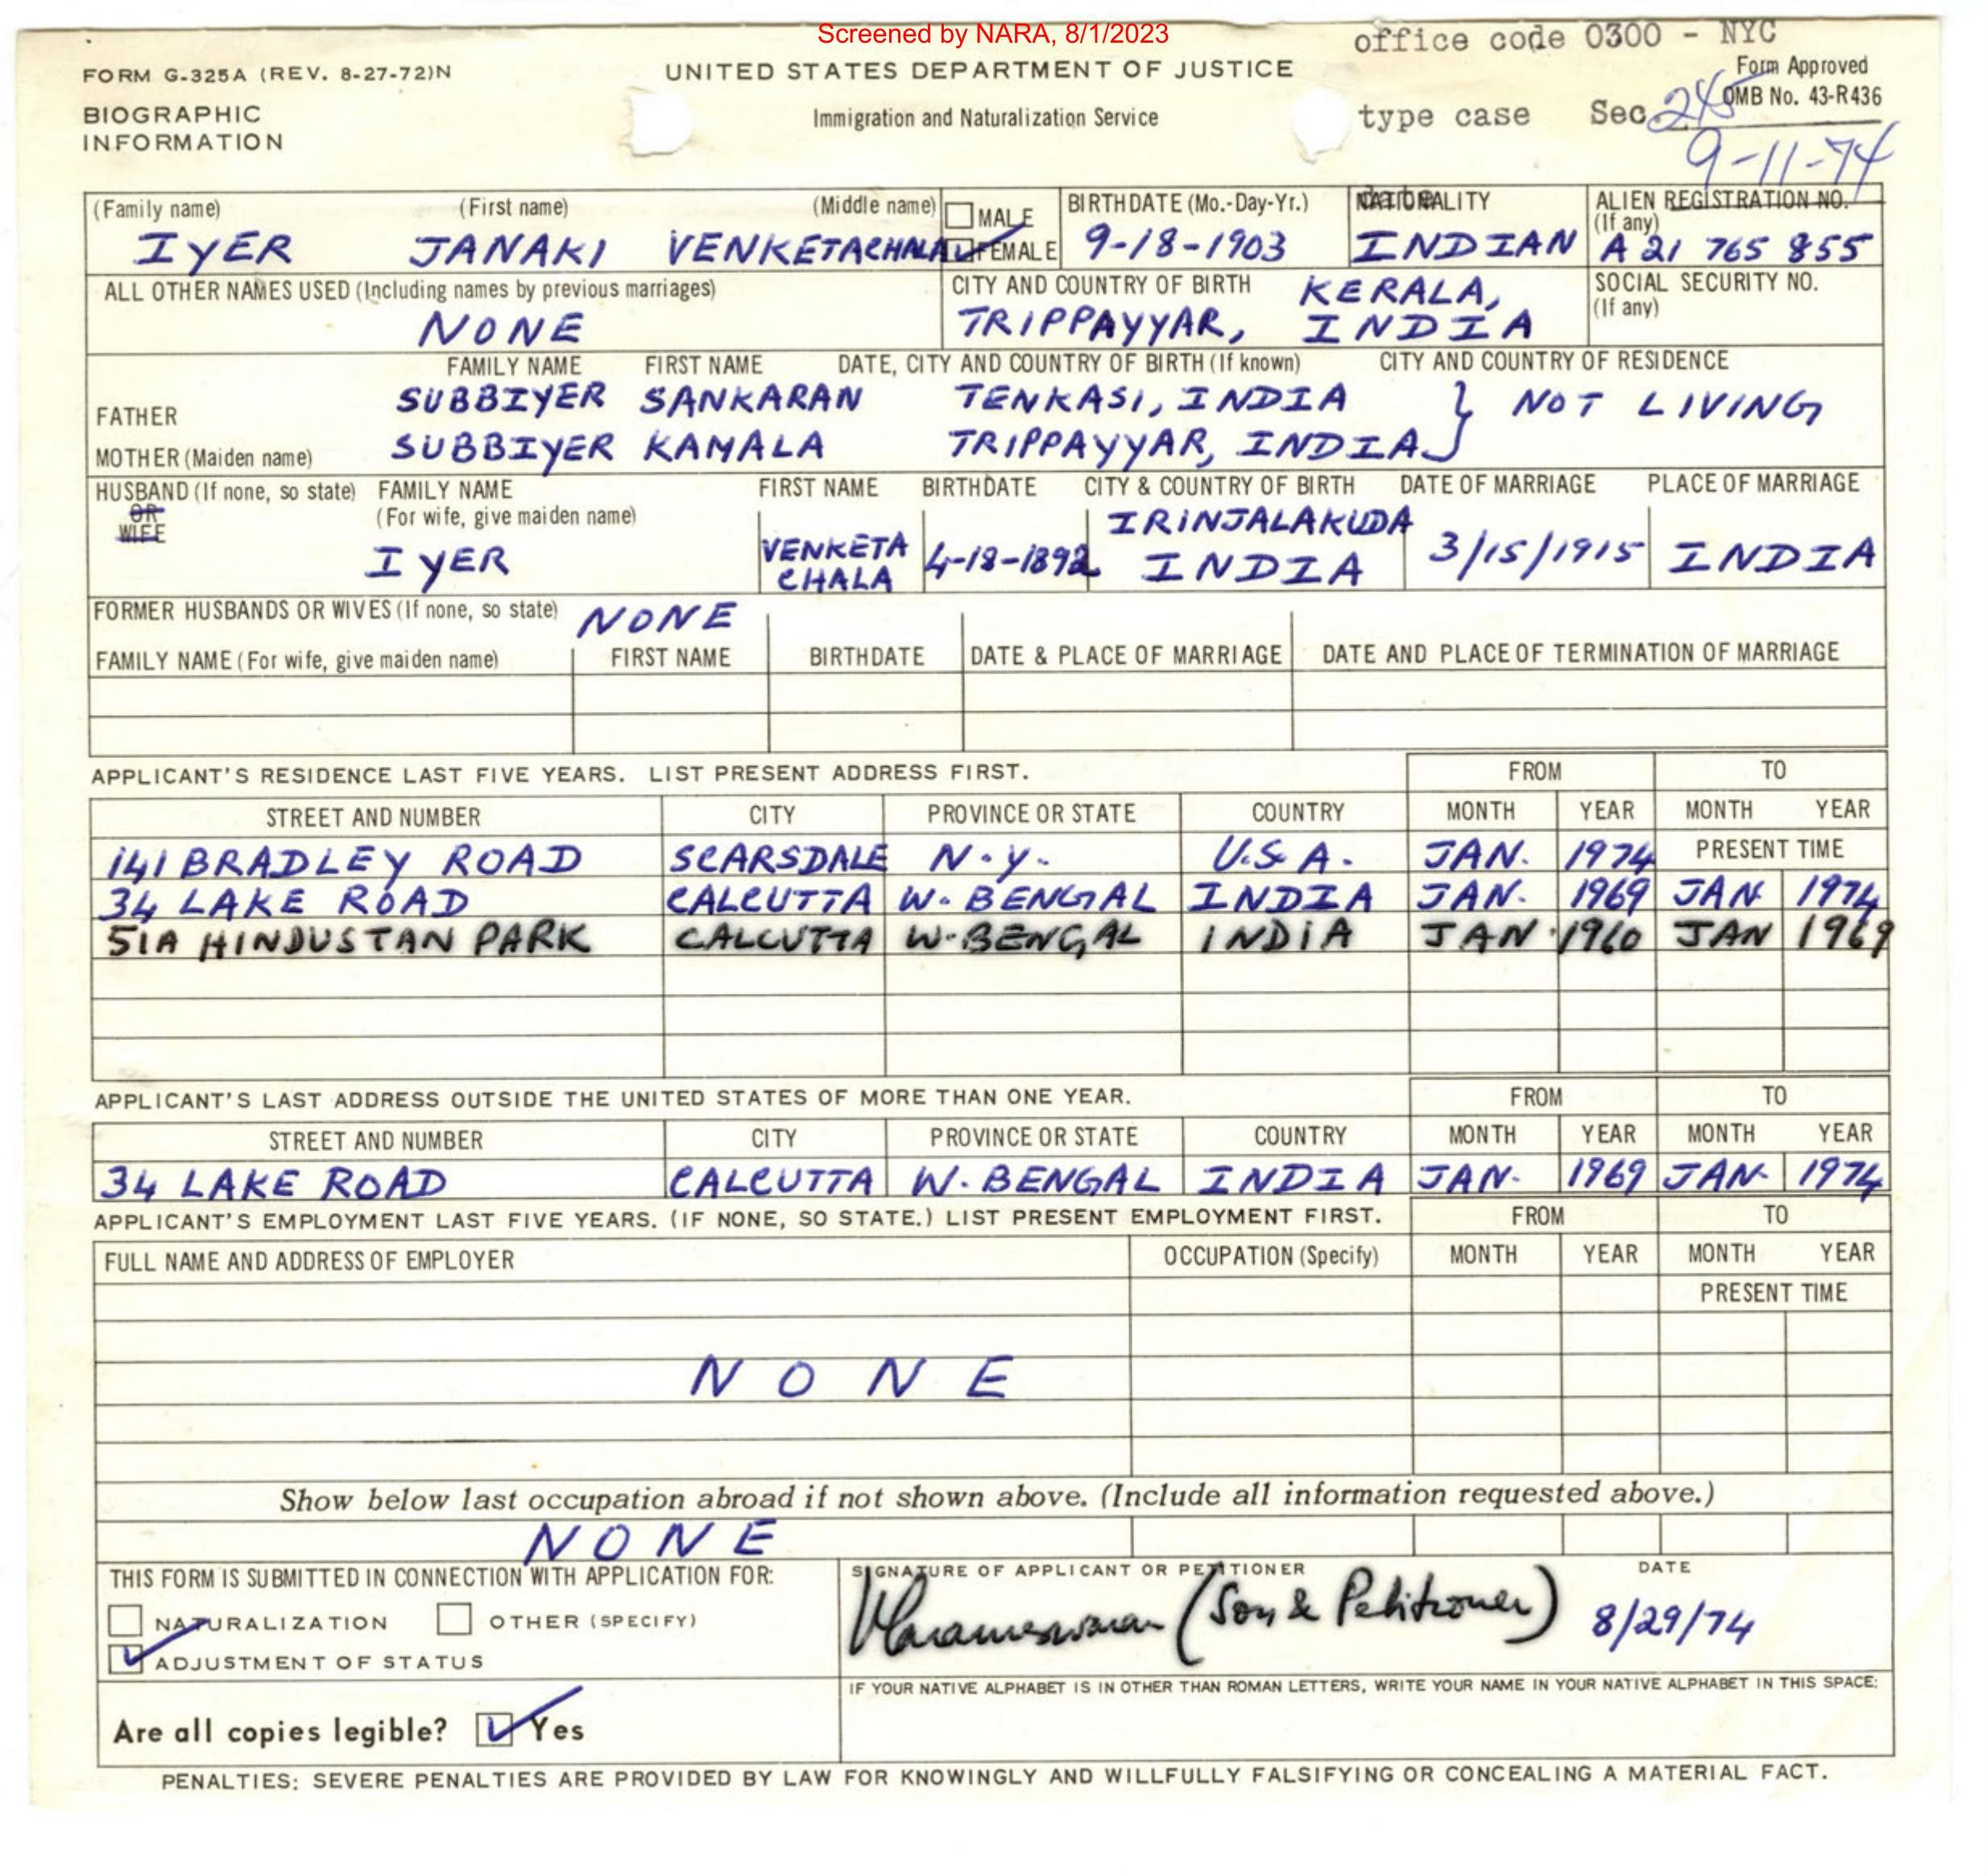 Screened by NARA, 8/1/2023
office code 0300 - NYC
FORM G-325A (REV. 8-27-72)N
UNITED STATES DEPARTMENT OF JUSTICE
Form Approved
OMB No. 43-R436
BIOGRAPHIC
INFORMATION
Immigration and Naturalization Service
type case Sec. 245
9-11-74
date
(Family name) (First name) (Middle name) MALE BIRTHDATE (Mo.-Day-Yr.) NATIONALITY ALIEN REGISTRATION NO.
(If any)
IYER JANAKI VENKETACHALA FEMALE 9-18-1903 INDIAN A 21 765 855
ALL OTHER NAMES USED (Including names by previous marriages) CITY AND COUNTRY OF BIRTH KERALA, SOCIAL SECURITY NO.
(If any)
NONE TRIPPAYYAR, INDIA
FAMILY NAME FIRST NAME DATE, CITY AND COUNTRY OF BIRTH (If known) CITY AND COUNTRY OF RESIDENCE
FATHER SUBBIYER SANKARAN TENKASI, INDIA } NOT LIVING
MOTHER (Maiden name) SUBBIYER KAMALA TRIPPAYYAR, INDIA
HUSBAND (If none, so state) FAMILY NAME FIRST NAME BIRTHDATE CITY & COUNTRY OF BIRTH DATE OF MARRIAGE PLACE OF MARRIAGE
OR (For wife, give maiden name) IRINJALAKUDA
WIFE
IYER VENKETA 4-18-1892 INDIA 3/15/1915 INDIA
CHALA
FORMER HUSBANDS OR WIVES (If none, so state) NONE
FAMILY NAME (For wife, give maiden name) FIRST NAME BIRTHDATE DATE & PLACE OF MARRIAGE DATE AND PLACE OF TERMINATION OF MARRIAGE
APPLICANT'S RESIDENCE LAST FIVE YEARS. LIST PRESENT ADDRESS FIRST. FROM TO
STREET AND NUMBER CITY PROVINCE OR STATE COUNTRY MONTH YEAR MONTH YEAR
141 BRADLEY ROAD SCARSDALE N.Y. U.S.A. JAN. 1974 PRESENT TIME
34 LAKE ROAD CALCUTTA W. BENGAL INDIA JAN. 1969 JAN 1974
51A HINDUSTAN PARK CALCUTTA W.BENGAL INDIA JAN. 1960 JAN 1969
APPLICANT'S LAST ADDRESS OUTSIDE THE UNITED STATES OF MORE THAN ONE YEAR. FROM TO
STREET AND NUMBER CITY PROVINCE OR STATE COUNTRY MONTH YEAR MONTH YEAR
34 LAKE ROAD CALCUTTA W. BENGAL INDIA JAN. 1969 JAN. 1974
APPLICANT'S EMPLOYMENT LAST FIVE YEARS. (IF NONE, SO STATE.) LIST PRESENT EMPLOYMENT FIRST. FROM TO
FULL NAME AND ADDRESS OF EMPLOYER OCCUPATION (Specify) MONTH YEAR MONTH YEAR
PRESENT TIME
NONE
Show below last occupation abroad if not shown above. (Include all information requested above.)
NONE
THIS FORM IS SUBMITTED IN CONNECTION WITH APPLICATION FOR: SIGNATURE OF APPLICANT OR PETITIONER DATE
NATURALIZATION OTHER (SPECIFY) (Son & Petitioner) 8/29/74
ADJUSTMENT OF STATUS
IF YOUR NATIVE ALPHABET IS IN OTHER THAN ROMAN LETTERS, WRITE YOUR NAME IN YOUR NATIVE ALPHABET IN THIS SPACE:
Are all copies legible? Yes
PENALTIES: SEVERE PENALTIES ARE PROVIDED BY LAW FOR KNOWINGLY AND WILLFULLY FALSIFYING OR CONCEALING A MATERIAL FACT.